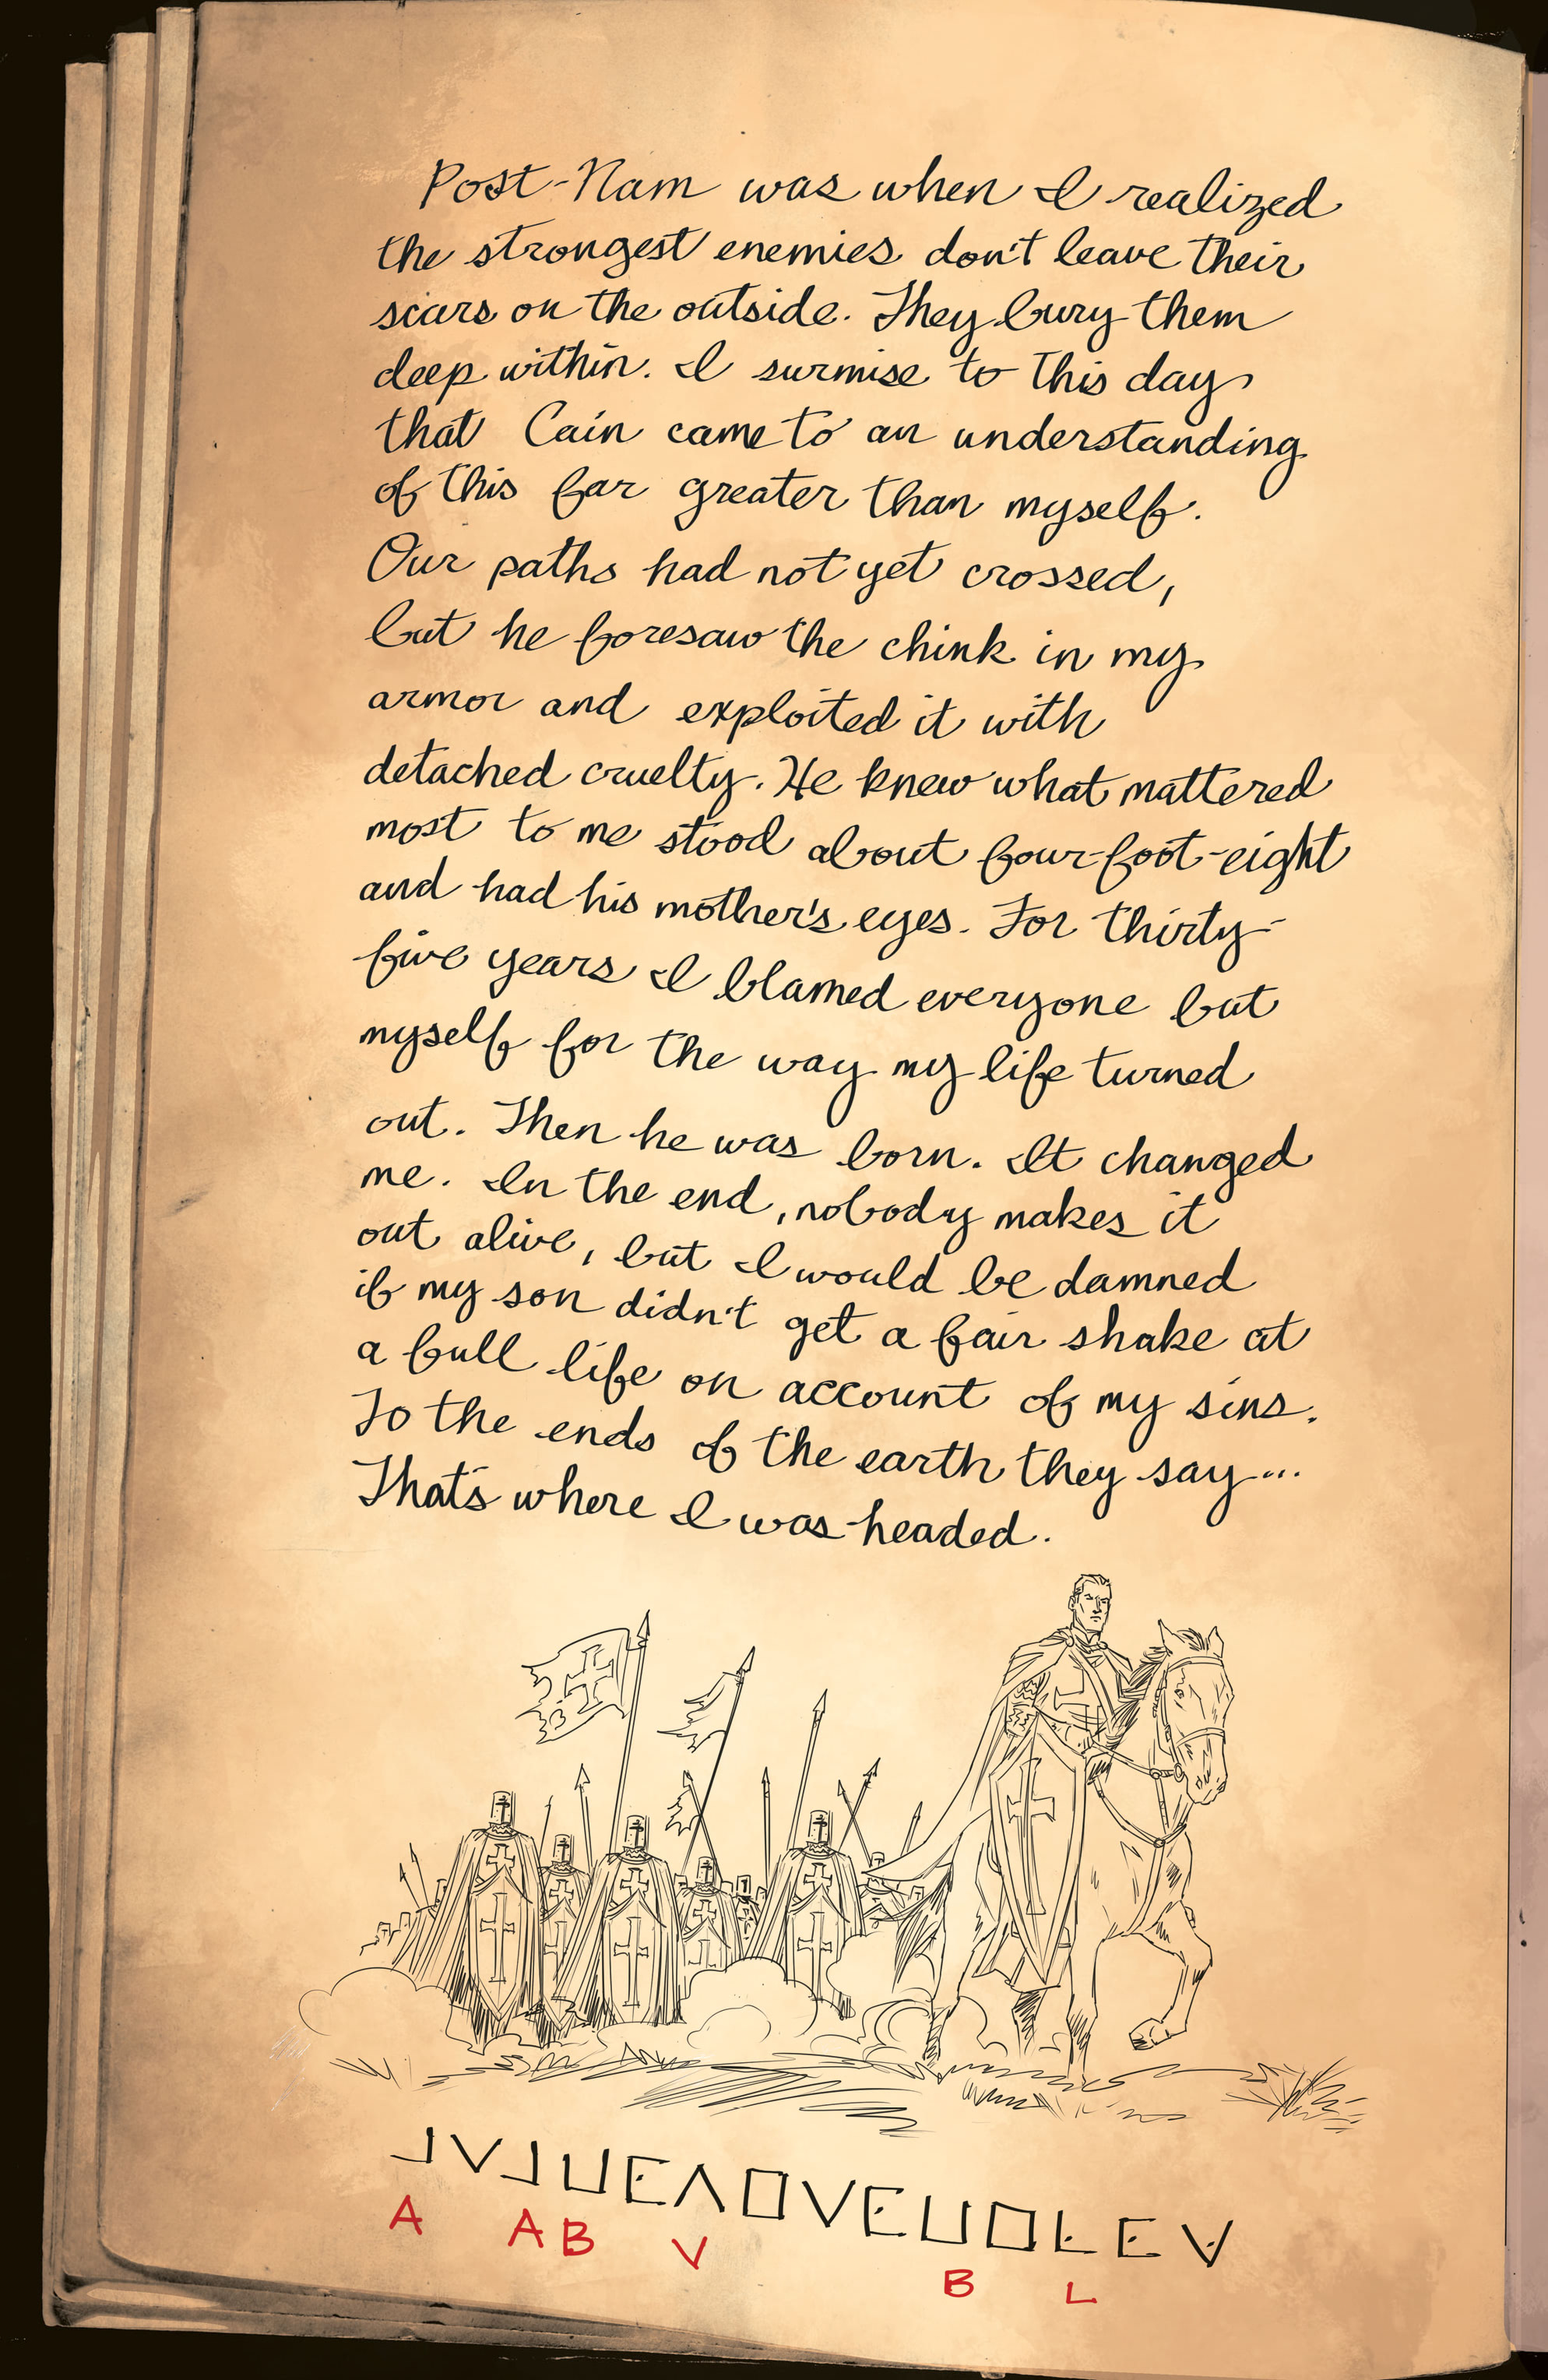 Post-Nam was when I realized
the strongest enemies don't leave their
scars on the outside. They bury them
deep within. I surmise to this day
that Cain came to an understanding
of this far greater than myself.
Our paths had not yet crossed,
but he foresaw the chink in my
armor and exploited it with
detached cruelty. He knew what mattered
most to me stood about four-foot-eight
and had his mother's eyes. For thirty-
five years I blamed everyone but
myself for the way my life turned
out. Then he was born. It changed
me. In the end, nobody makes it
out alive, but I would be damned
if my son didn't get a fair shake at
a full life on account of my sins.
To the ends of the earth they say...
That's where I was headed.
A AB V B L